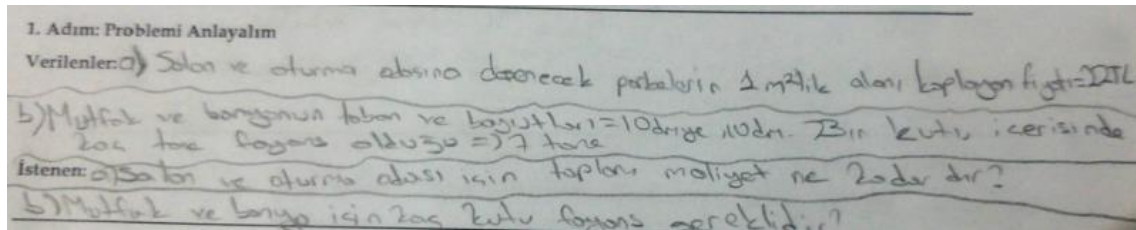 1. Adım: Problemi Anlayalım
Verilenler: a) Salon ve oturma odasına döşenecek parkelerin 1 m²'lik alanı kaplayan fiyatı=22TL
b) Mutfak ve banyonun taban ve boyutları=10dm ye 10dm. Bir kutu içerisinde
kaç tane fayans olduğu => 7 tane
İstenen: a) Salon ve oturma odası için toplam maliyet ne kadar dır?
b) Mutfak ve banyo için kaç kutu fayans gereklidir?